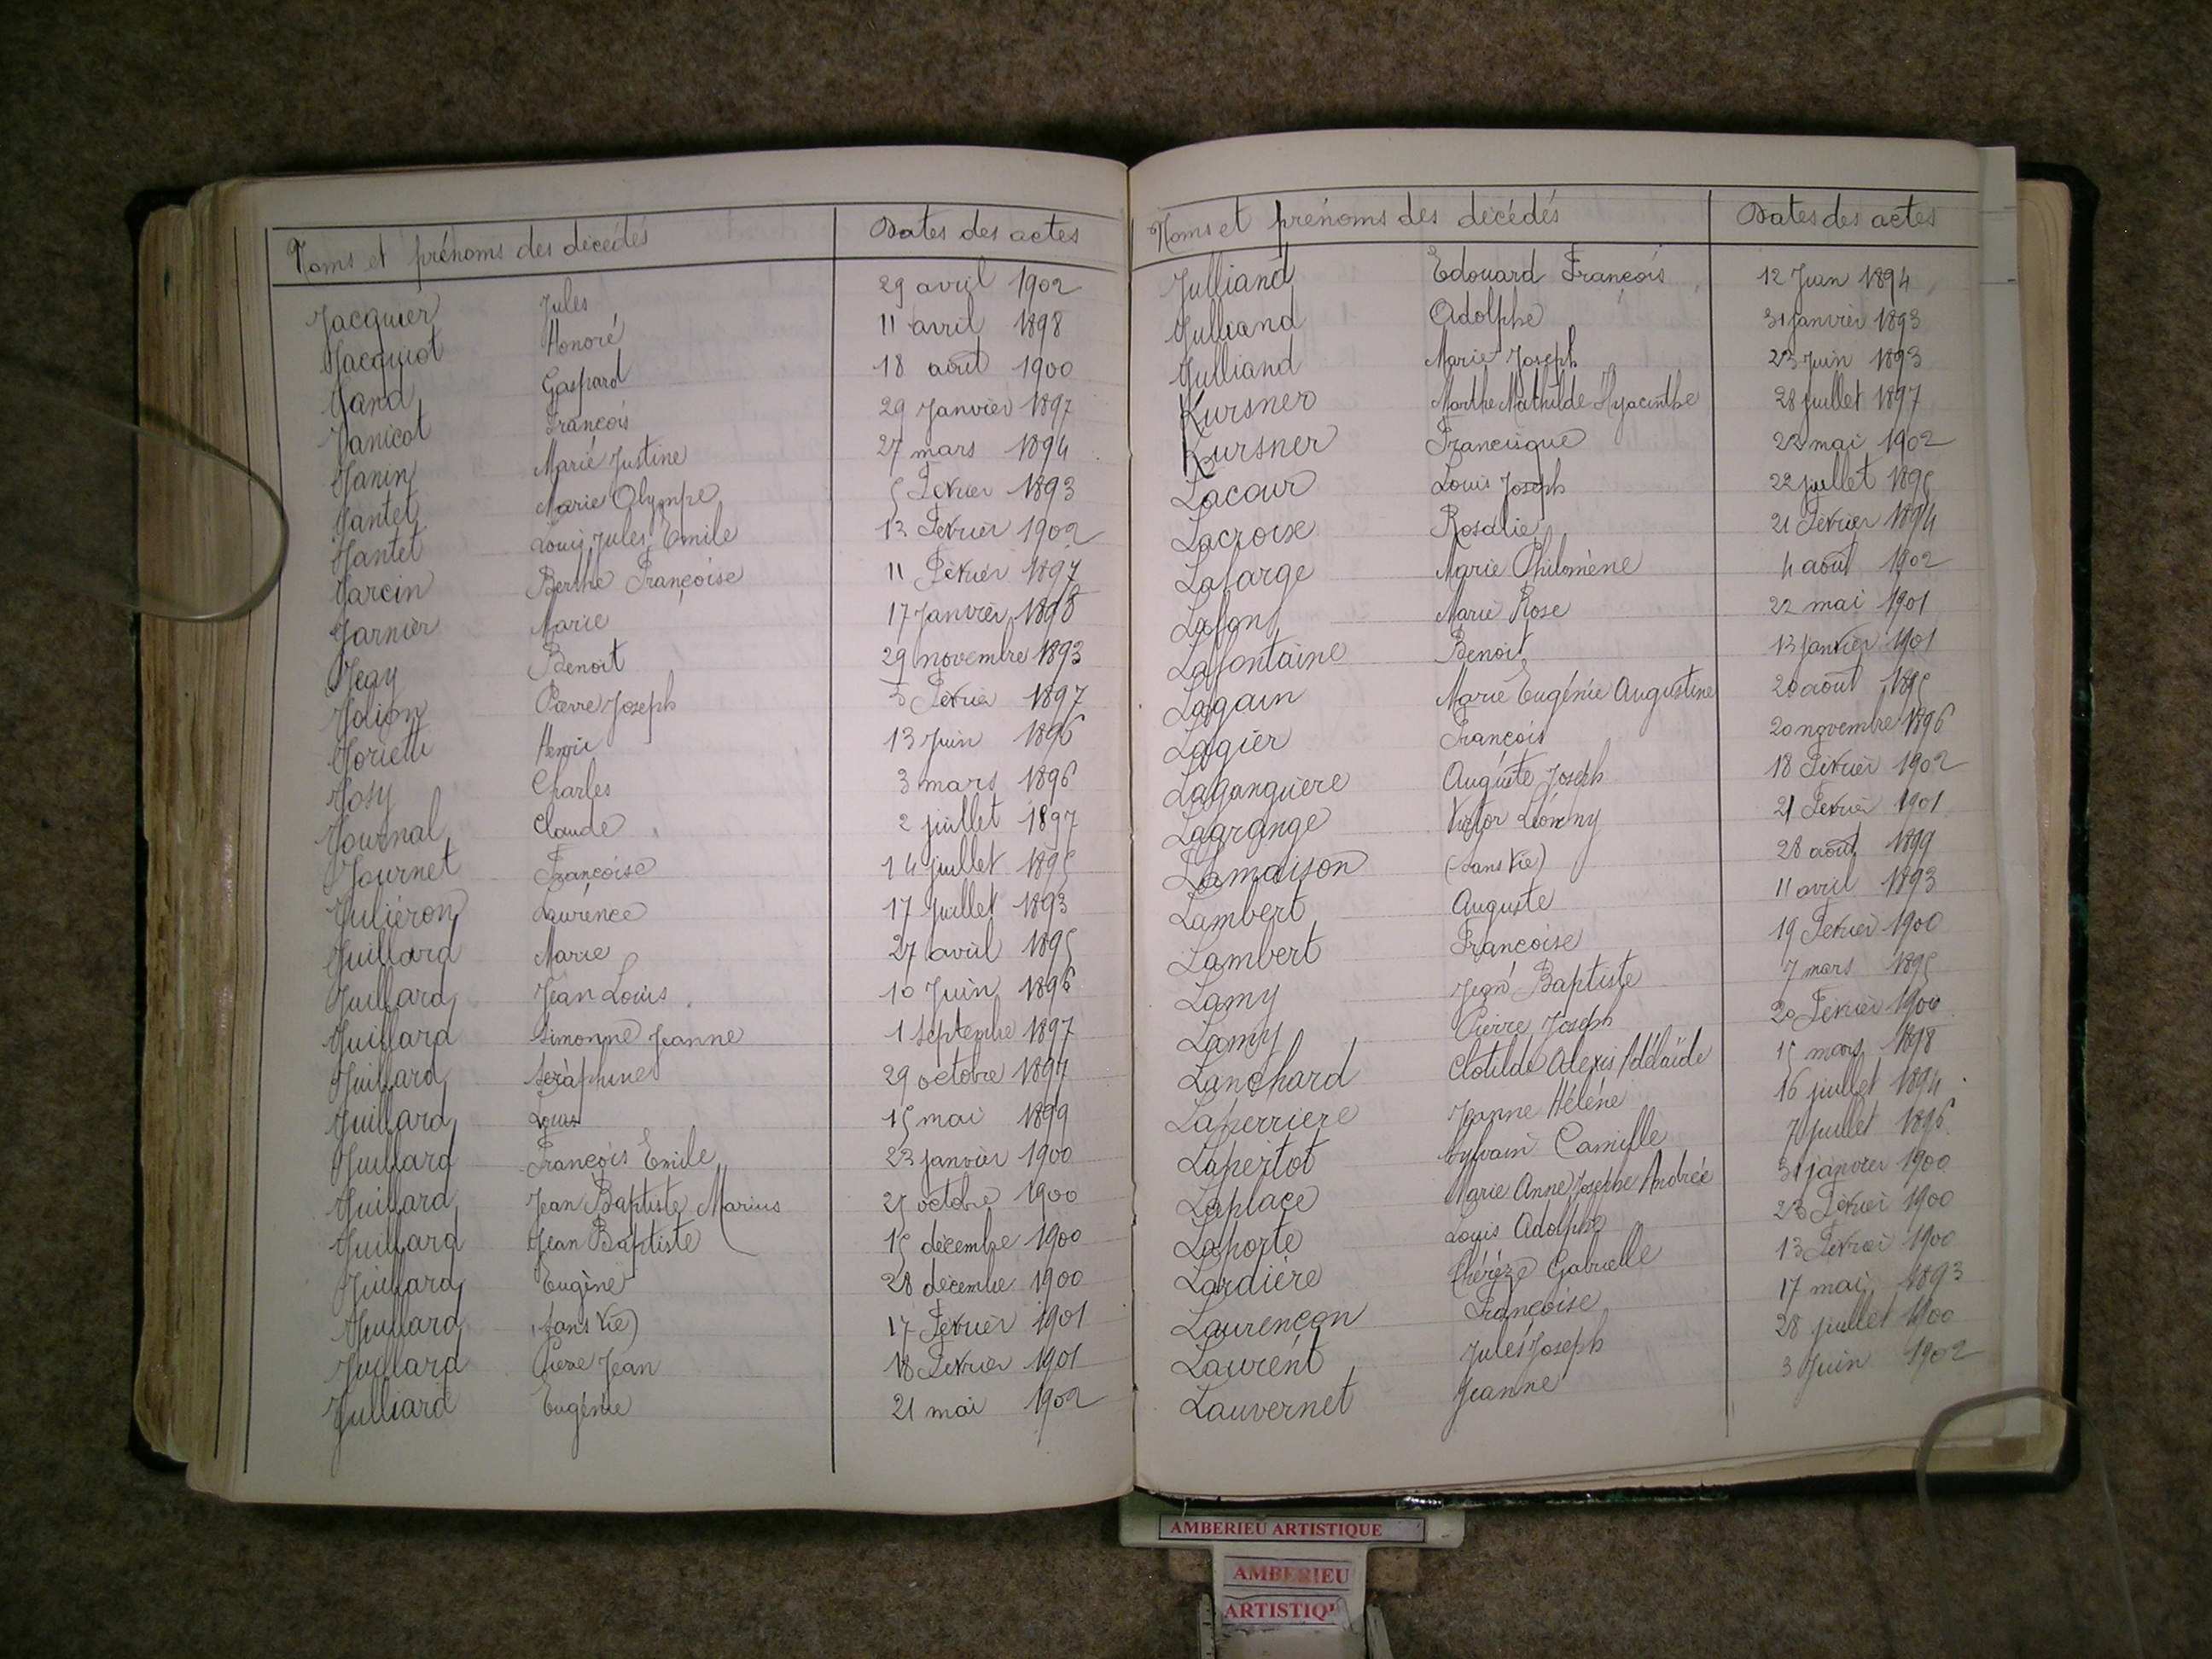 Noms et prénoms des décédés Dates des actes
Jacquier Jules 29 avril 1902
Jacquiot Honoré 11 avril 1898
Jand Gaspard 18 août 1900
Janicot François 29 Janvier 1897
Janin Marie Justine 27 mars 1894
Jantet Marie Olympe 5 Février 1893
Jantet Louis Jules Emile 13 Février 1902
Jarcin Berthe Françoise 11 Février 1897
Jarnier Marie 17 Janvier 1898
Jegy Benoit 29 novembre 1893
Jolion Pierre Joseph 3 Février 1897
Henri 13 Juin 1896
Josy Charles 3 mars 1896
Journal Claude 2 juillet 1897
Journet Françoise 14 juillet 1895
Juliéron Laurence 17 Juillet 1893
Juillard Marie 27 avril 1895
Juillard Jean Louis 10 Juin 1896
Juillard Simonne Jeanne 1 Septembre 1897
Juillard Séraphine 29 octobre 1897
Juillard Louis 15 mai 1899
Juillard François Emile 23 janvier 1900
Juillard Jean Baptiste Marius 25 octobre 1900
Juillard Jean Baptiste 15 décembre 1900
Juillard Eugène 28 décembre 1900
Juillard (sans vie) 17 Février 1901
Juillard Pierre Jean 18 Février 1901
Julliard Eugénie 21 mai 1902
Noms et prénoms des décédés Dates des actes
Julliand Edouard François 12 Juin 1894
Julliand Adolphe 31 janvier 1893
Julliand Marie Joseph 23 Juin 1893
Kursner Marthe Mathilde Hyacinthe 28 juillet 1897
Kursner Francisque 22 mai 1902
Lacour Louis Joseph 22 juillet 1895
Lacroix Rosalie 21 Février 1894
Lafarge Marie Philomène 4 août 1902
Lafont Marie Rose 22 mai 1901
Lafontaine Benoit 13 janvier 1901
Lagain Marie Eugénie Augustine 20 août 1895
Lagier François 20 novembre 1896
Laganguiere Auguste Joseph 18 Février 1902
Lagrange Victor 21 Février 1901
Lamaison (sans vie) 28 août 1899
Lambert Auguste 11 avril 1893
Lambert Françoise 19 Février 1900
Lamy Jean Baptiste 7 mars 1895
Lamy Pierre Joseph 20 Février 1900
Lanchard Clotilde Alexis Adélaïde 15 mars 1898
Laperriere Jeanne Hélène 16 juillet 1894
Lapertot Sylvain Camille 7 Juillet 1896
Laplace Marie Anne Josephe Andrée 31 janvier 1900
Laporte Louis Adolphe 23 Février 1900
Lardière Thérèze Gabrielle 13 Février 1900
Laurençon Françoise 17 mai 1893
Laurent Jules Joseph 28 juillet 1900
Lauvernet Jeanne 3 Juin 1902
AMBERIEU ARTISTIQUE
AMBERIEU
ARTISTIQU